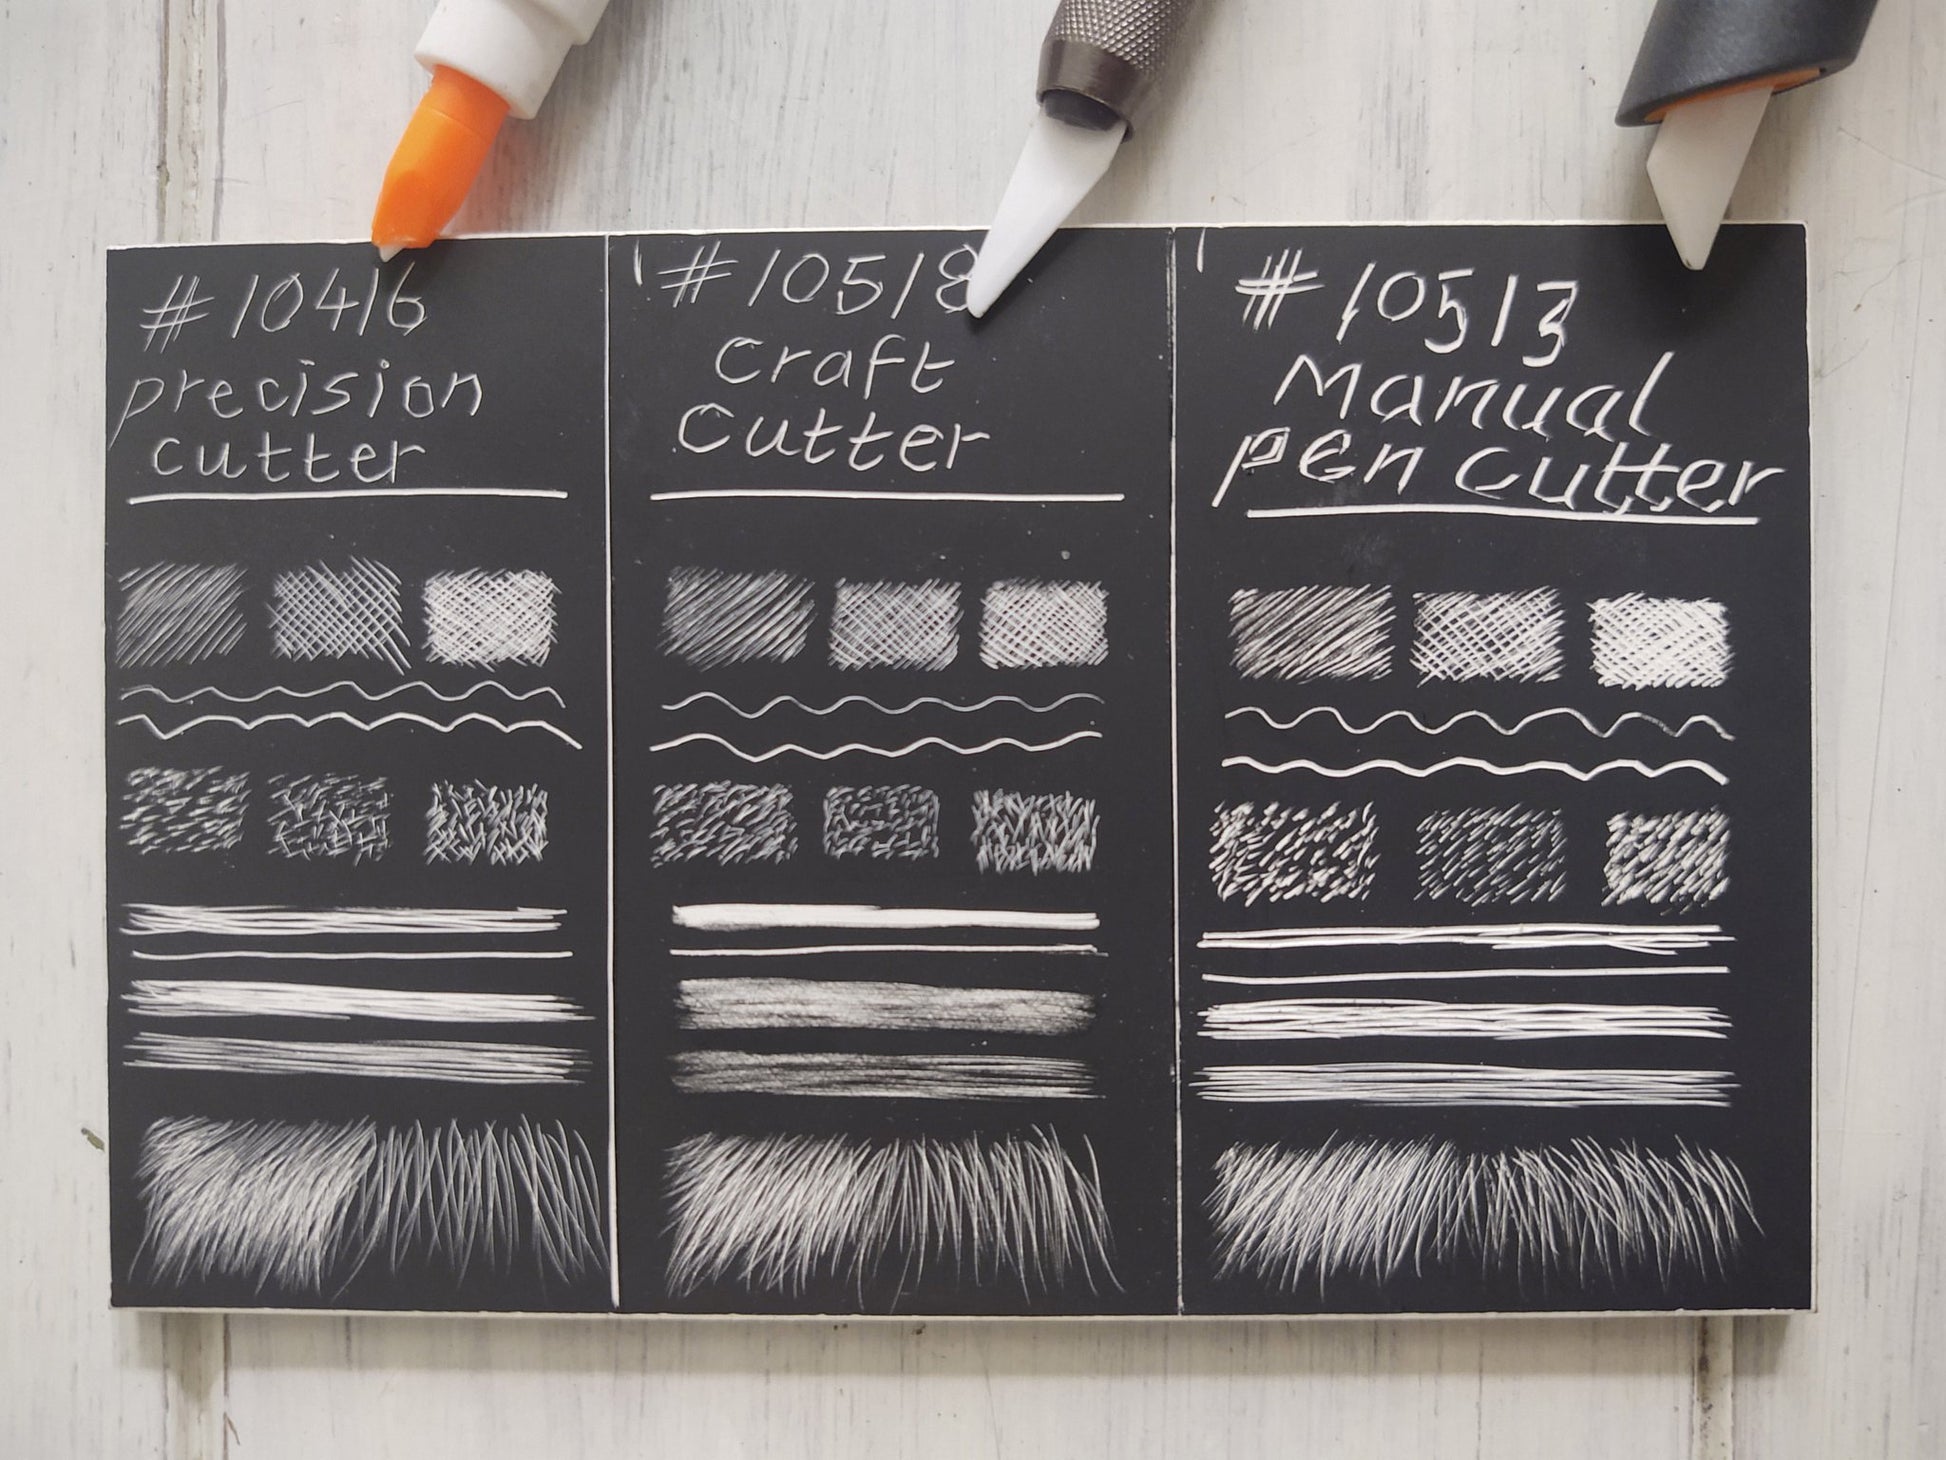 #10416
precision
cutter
#10518
Craft
Cutter
#10513
Manual
pen cutter